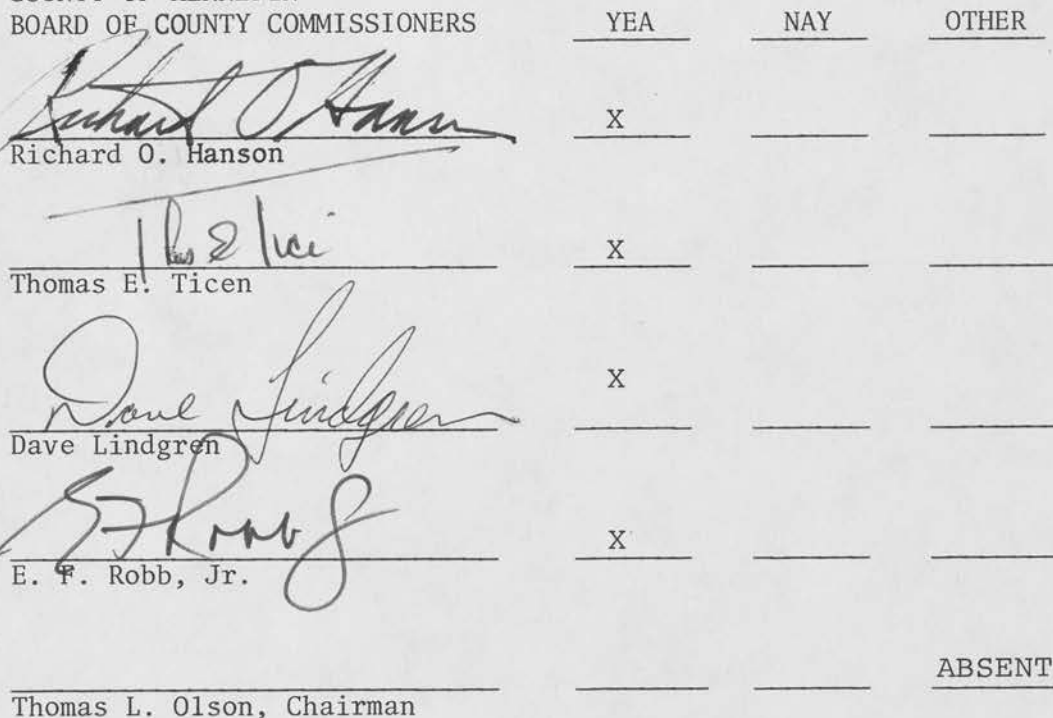 BOARD OF COUNTY COMMISSIONERS YEA NAY OTHER
Richard O Hanson X
Richard O. Hanson
Thos E Tici X
Thomas E. Ticen
Dave Lindgren X
Dave Lindgren
E F Robb Jr X
E. F. Robb, Jr.
ABSENT
Thomas L. Olson, Chairman